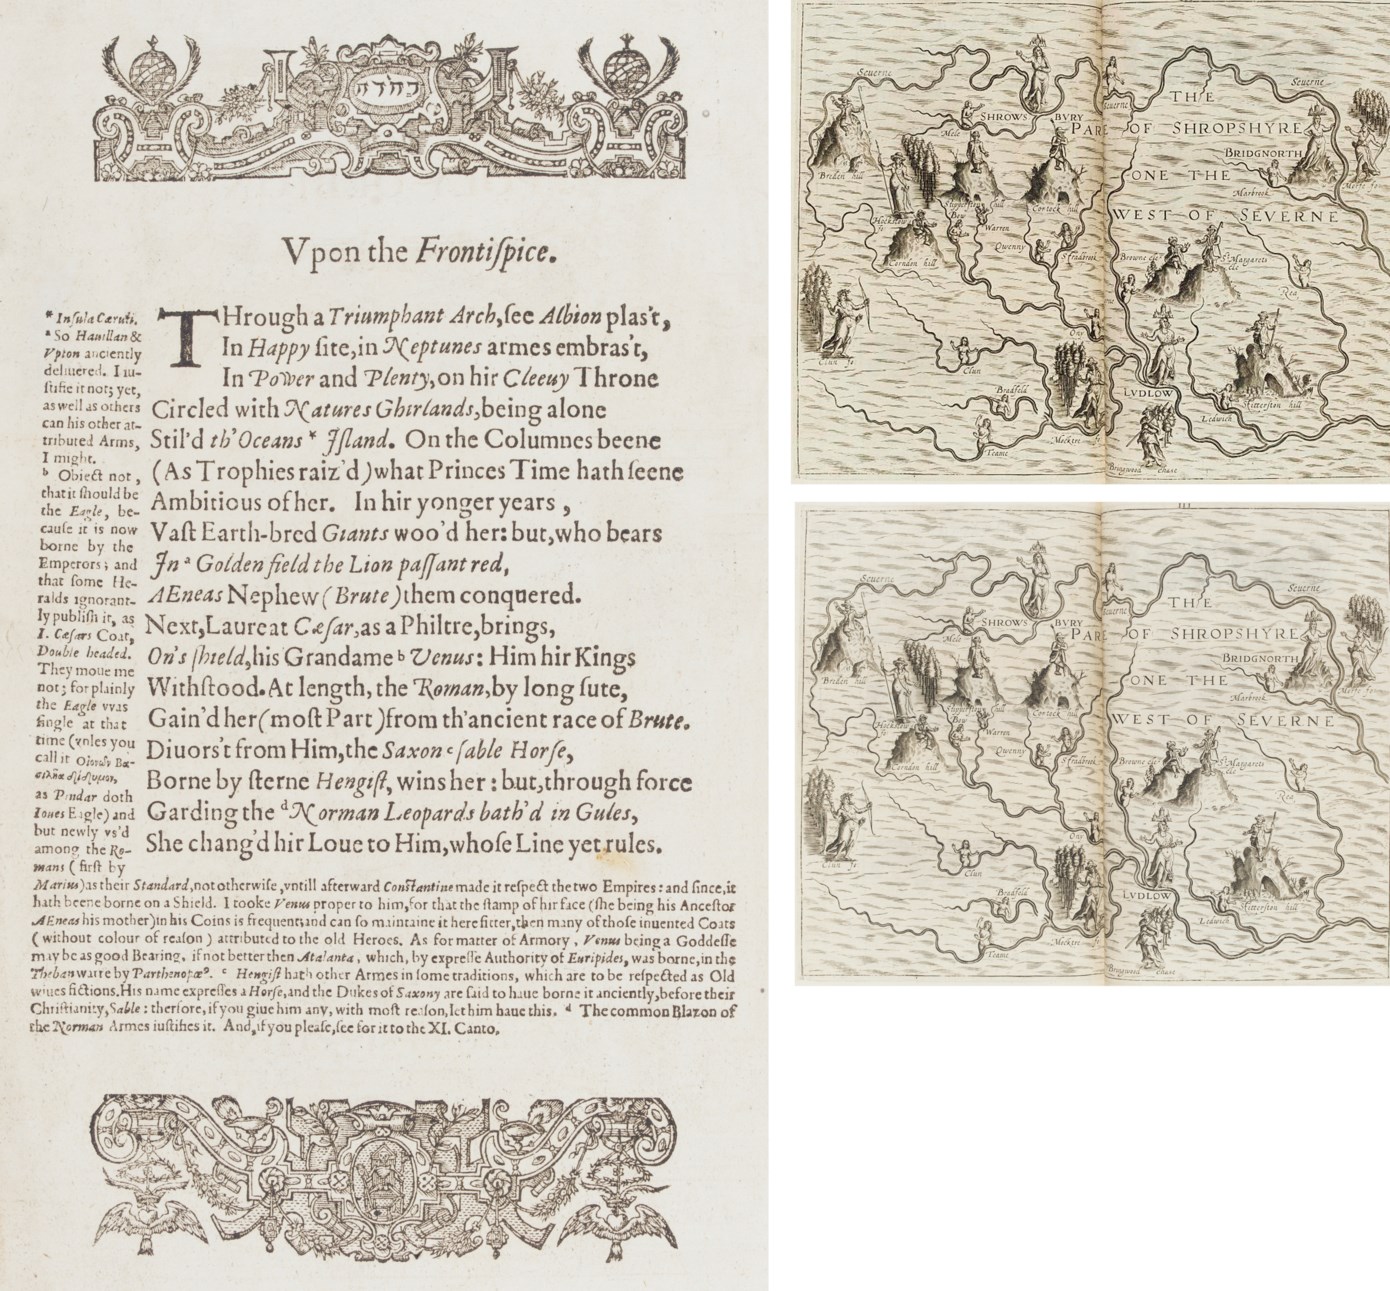 Vpon the Frontiſpice.
THrough a Triumphant Arch, ſee Albion plas't,
In Happy ſite, in Neptunes armes embras't,
In Power and Plenty, on hir Cleeuy Throne
Circled with Natures Ghirlands, being alone
Stil'd th'Oceans * Iſland. On the Columnes beene
(As Trophies raiz'd) what Princes Time hath ſeene
Ambitious of her. In hir yonger years,
Vaſt Earth-bred Giants woo'd her: but, who bears
In a Golden field the Lion paſſant red,
AEneas Nephew (Brute) them conquered.
Next, Laureat Cæſar, as a Philtre, brings,
On's ſhield, his Grandame b Venus: Him hir Kings
Withſtood. At length, the Roman, by long ſute,
Gain'd her (moſt Part) from th'ancient race of Brute.
Diuors't from Him, the Saxon c ſable Horſe,
Borne by ſterne Hengiſt, wins her: but, through force
Garding the d Norman Leopards bath'd in Gules,
She chang'd hir Loue to Him, whoſe Line yet rules.
* Inſula Cæruli.
a So Hauillan &
Vpton anciently
deliuered. I iu-
ſtifie it not; yet,
as well as others
can his other at-
tributed Arms,
I might.
b Obiect not,
that it ſhould be
the Eagle, be-
cauſe it is now
borne by the
Emperors; and
that ſome He-
ralds ignorant-
ly publiſh it, as
I. Cæſars Coat,
Double headed.
They moue me
not; for plainly
the Eagle vvas
ſingle at that
time (vnles you
call it
as Pindar doth
Ioues Eagle) and
but newly vs'd
among the Ro-
mans (firſt by
Marius) as their Standard, not otherwiſe, vntill afterward Conſtantine made it reſpect the two Empires: and ſince, it
hath beene borne on a Shield. I tooke Venus proper to him, for that the ſtamp of hir face (ſhe being his Anceſtor
AEneas his mother) in his Coins is frequent, and can ſo maintaine it here fitter, then many of thoſe inuented Coats
(without colour of reaſon) attributed to the old Heroes. As for matter of Armory, Venus being a Goddeſſe
may be as good Bearing, if not better then Atalanta, which, by expreſſe Authority of Euripides, was borne, in the
Theban warre by Parthenopæ9. c Hengiſt hath other Armes in ſome traditions, which are to be reſpected as Old
wiues fictions. His name expreſſes a Horſe, and the Dukes of Saxony are ſaid to haue borne it anciently, before their
Chriſtianity, Sable: therfore, if you giue him any, with moſt reaſon, let him haue this. d The common Blazon of
the Norman Armes iuſtifies it. And, if you pleaſe, ſee for it to the XI. Canto.
Seuerne
Seuerne
THE
Seuerne
SHROWSBVRY
Mele
PART OF SHROPSHYRE
BRIDGNORTH
Breden hill
ONE THE
Marbrook
Morfe fo
Stipperston hill
Corfock hill
WEST OF SEVERNE
Bow
Warren
Quenny
Stradbrook
Corndon hill
Browne clee
St Margarets clee
Rea
Clun fo
Ony
Clun
LVDLOW
Bradfeld
Ledwich
Titterston hill
Mocktre fo
Teame
Bringwood chase
Seuerne
Seuerne
THE
Seuerne
SHROWSBVRY
Mele
PART OF SHROPSHYRE
BRIDGNORTH
Breden hill
ONE THE
Marbrook
Morfe fo
Stipperston hill
Corfock hill
WEST OF SEVERNE
Bow
Warren
Quenny
Stradbrook
Corndon hill
Browne clee
St Margarets clee
Rea
Clun fo
Ony
Clun
LVDLOW
Bradfeld
Ledwich
Titterston hill
Mocktre fo
Teame
Bringwood chase